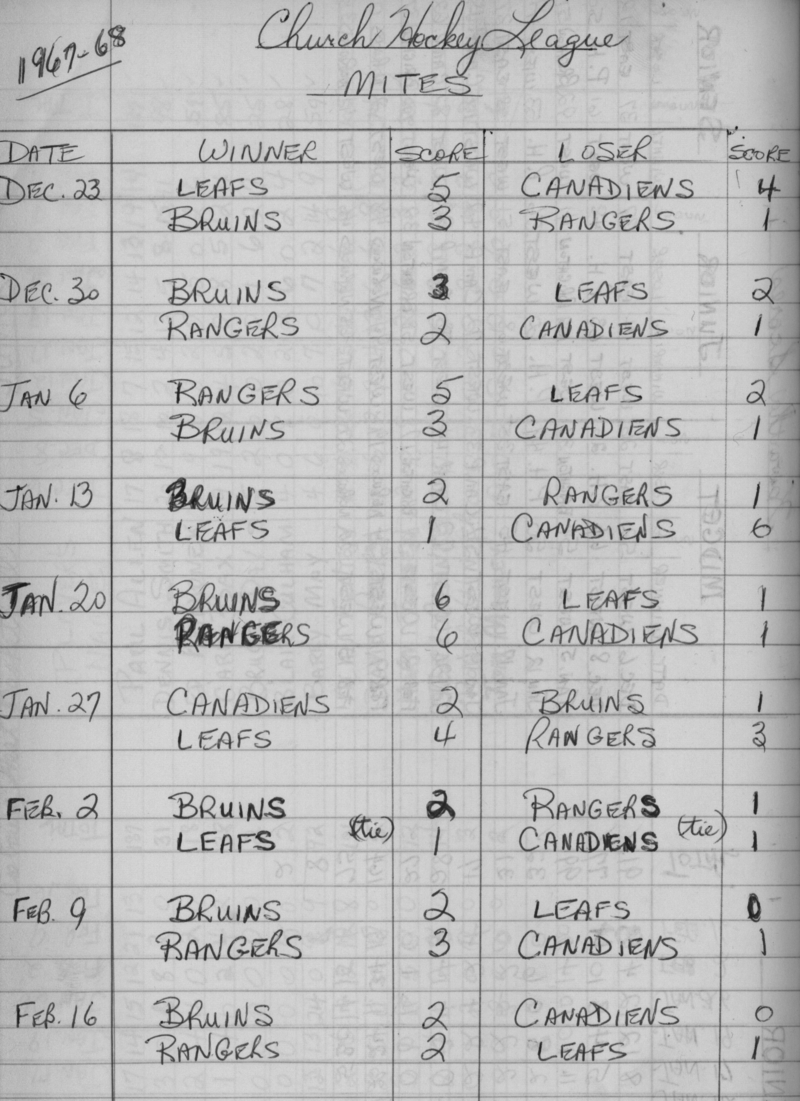 1967-68
Church Hockey League
MITES
DATE WINNER SCORE LOSER SCORE
DEC. 23 LEAFS 5 CANADIENS 4
BRUINS 3 RANGERS 1
DEC. 30 BRUINS 3 LEAFS 2
RANGERS 2 CANADIENS 1
JAN 6 RANGERS 5 LEAFS 2
BRUINS 3 CANADIENS 1
JAN. 13 BRUINS 2 RANGERS 1
LEAFS 1 CANADIENS 0
JAN. 20 BRUINS 6 LEAFS 1
RANGERS 6 CANADIENS 1
JAN. 27 CANADIENS 2 BRUINS 1
LEAFS 4 RANGERS 3
FEB. 2 BRUINS 2 RANGERS 1
LEAFS (tie) 1 CANADIENS (tie) 1
FEB. 9 BRUINS 2 LEAFS 0
RANGERS 3 CANADIENS 1
FEB. 16 BRUINS 2 CANADIENS 0
RANGERS 2 LEAFS 1